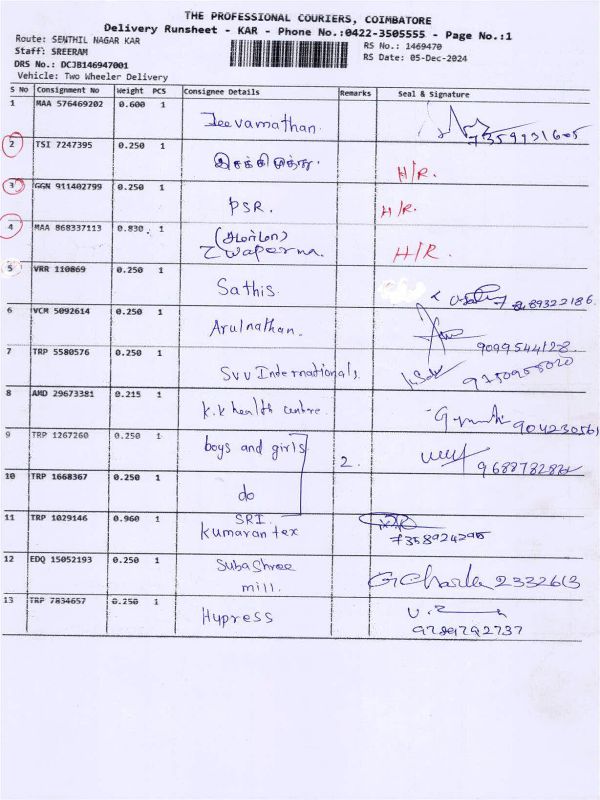 THE PROFESSIONAL COURIERS, COIMBATORE
Delivery Runsheet - KAR - Phone No.:0422-3505555 - Page No.:1
Route: SENTHIL NAGAR KAR RS No.: 1469470
Staff: SREERAM RS Date: 05-Dec-2024
DRS No.: DCJB146947001
Vehicle: Two Wheeler Delivery
S No Consignment No Weight PCS Consignee Details Remarks Seal & Signature
1 MAA 576469202 0.600 1 Jeevamathan
2 TSI 7247395 0.250 1 H/R.
3 GGN 911402799 0.250 1 PSR. H/R.
4 MAA 868337113 0.830 1 H/R.
5 VRR 110869 0.250 1 Sathis
6 VCM 5092614 0.250 1 Arulnathan. 9099544128
7 TRP 5580576 0.250 1 SVV Internationals
8 AMD 29673381 0.215 1 K.K health centre.
9 TRP 1267260 0.250 1 boys and girls 2.
10 TRP 1668367 0.250 1 do
11 TRP 1029146 0.960 1 SRI
kumaran tex 7358924295
12 EDQ 15052193 0.250 1 Subashree
mill. 2332613
13 TRP 7834657 0.250 1 Hypress